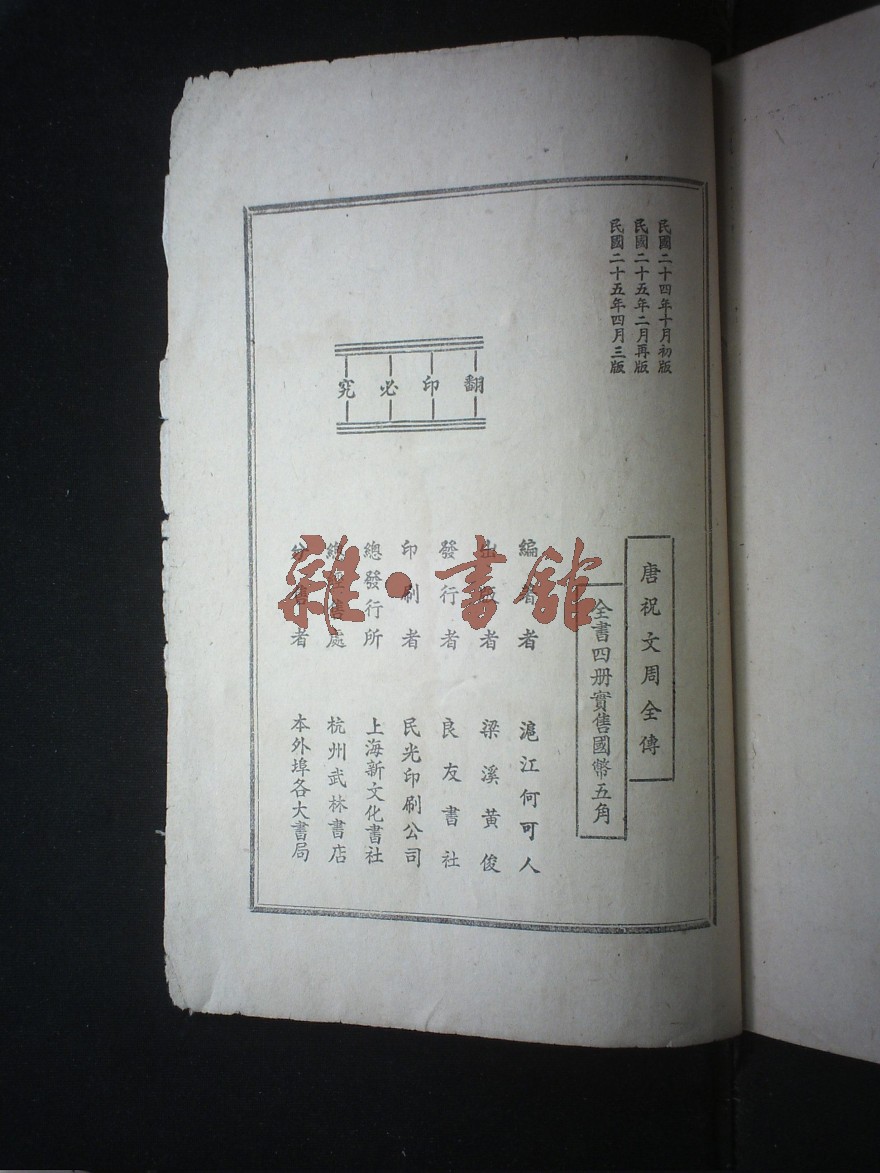 民國二十四年十月初版
民國二十五年二月再版
民國二十五年四月三版
翻印必究
唐祝文周全傳
全書四册實售國幣五角
編著者 滬江何可人
出版者 梁溪黃俊
發行者 良友書社
印刷者 民光印刷公司
總發行所 上海新文化書社
總經售處 杭州武林書店
分售者 本外埠各大書局
雜·書館